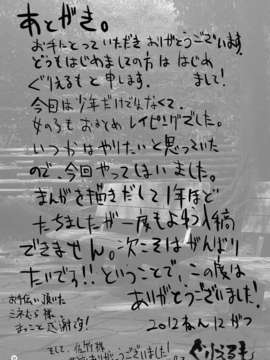 あとがき。
お手にとっていただき ありがとうございます。
どうもはじめましての方は はじめ
まして!
ぐりえるもと申します。
今回は少年だけでなくて、
女の子も まとめ レイピングでした。
いつかはやりたいと思っていた
ので、今回やってしまいました。
まんがを描きだして1年ほど
たちましたが一度もよゆう入稿
できません。次こそはがんばり
たいでう!! ということで、この度は
ありがとうございました!
お手伝い頂いた
ミネむら様
まっこと感謝ッ!
2012ねん12がつ
ぐりえるも
そして、佐竹様
ありがとうございました!